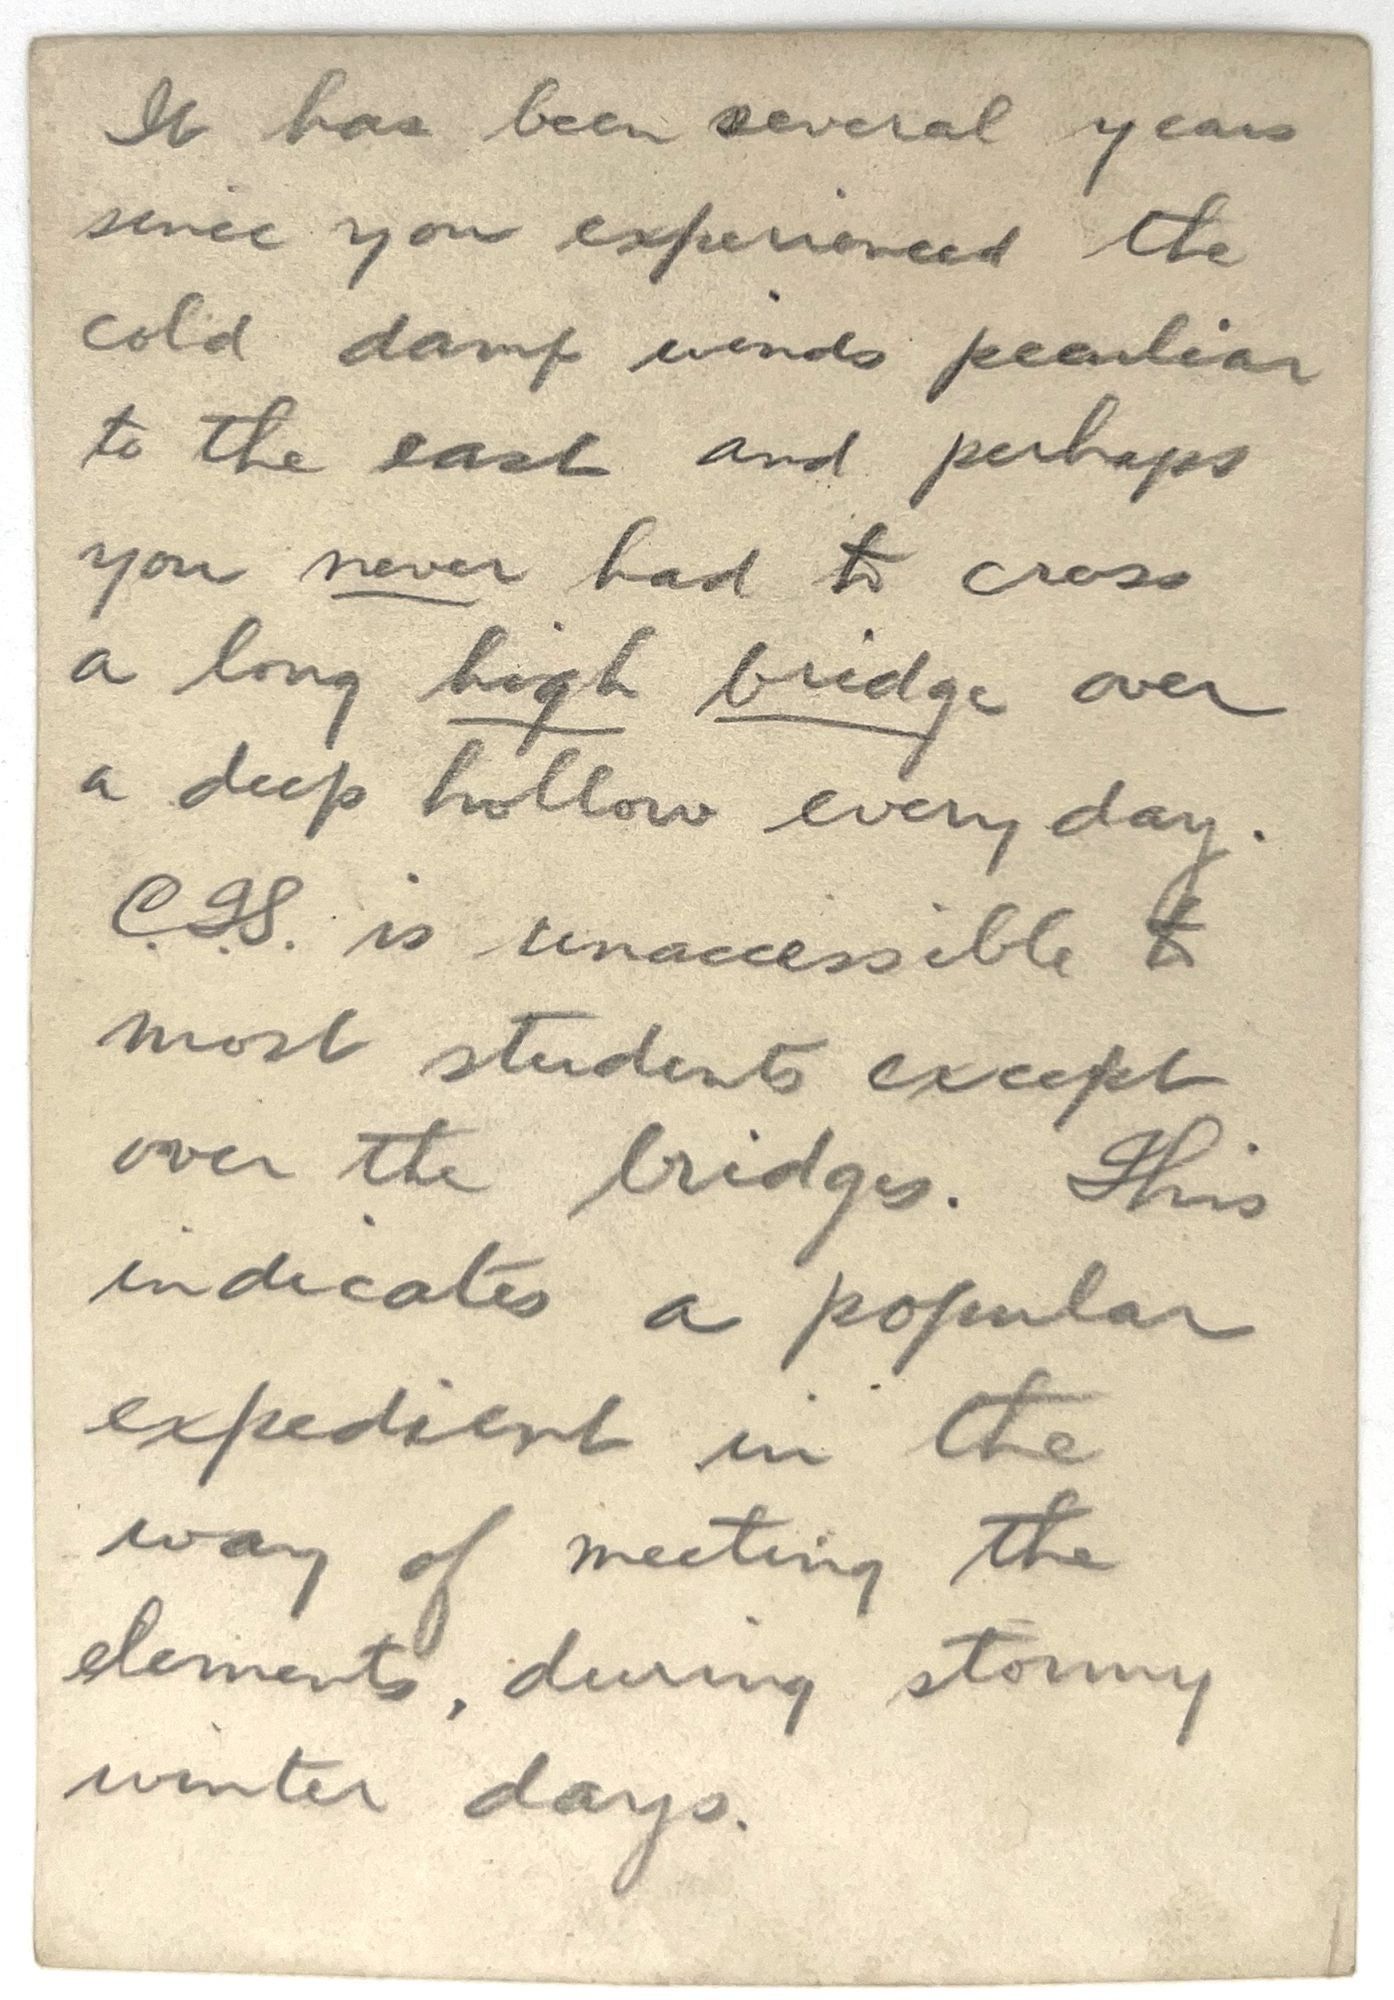 It has been several years
since you experienced the
cold damp winds peculiar
to the east and perhaps
you never had to cross
a long high bridge over
a deep hollow every day.
C.T.S. is unaccessible to
most students except
over the bridges. This
indicates a popular
expedient in the
way of meeting the
elements, during stormy
winter days.